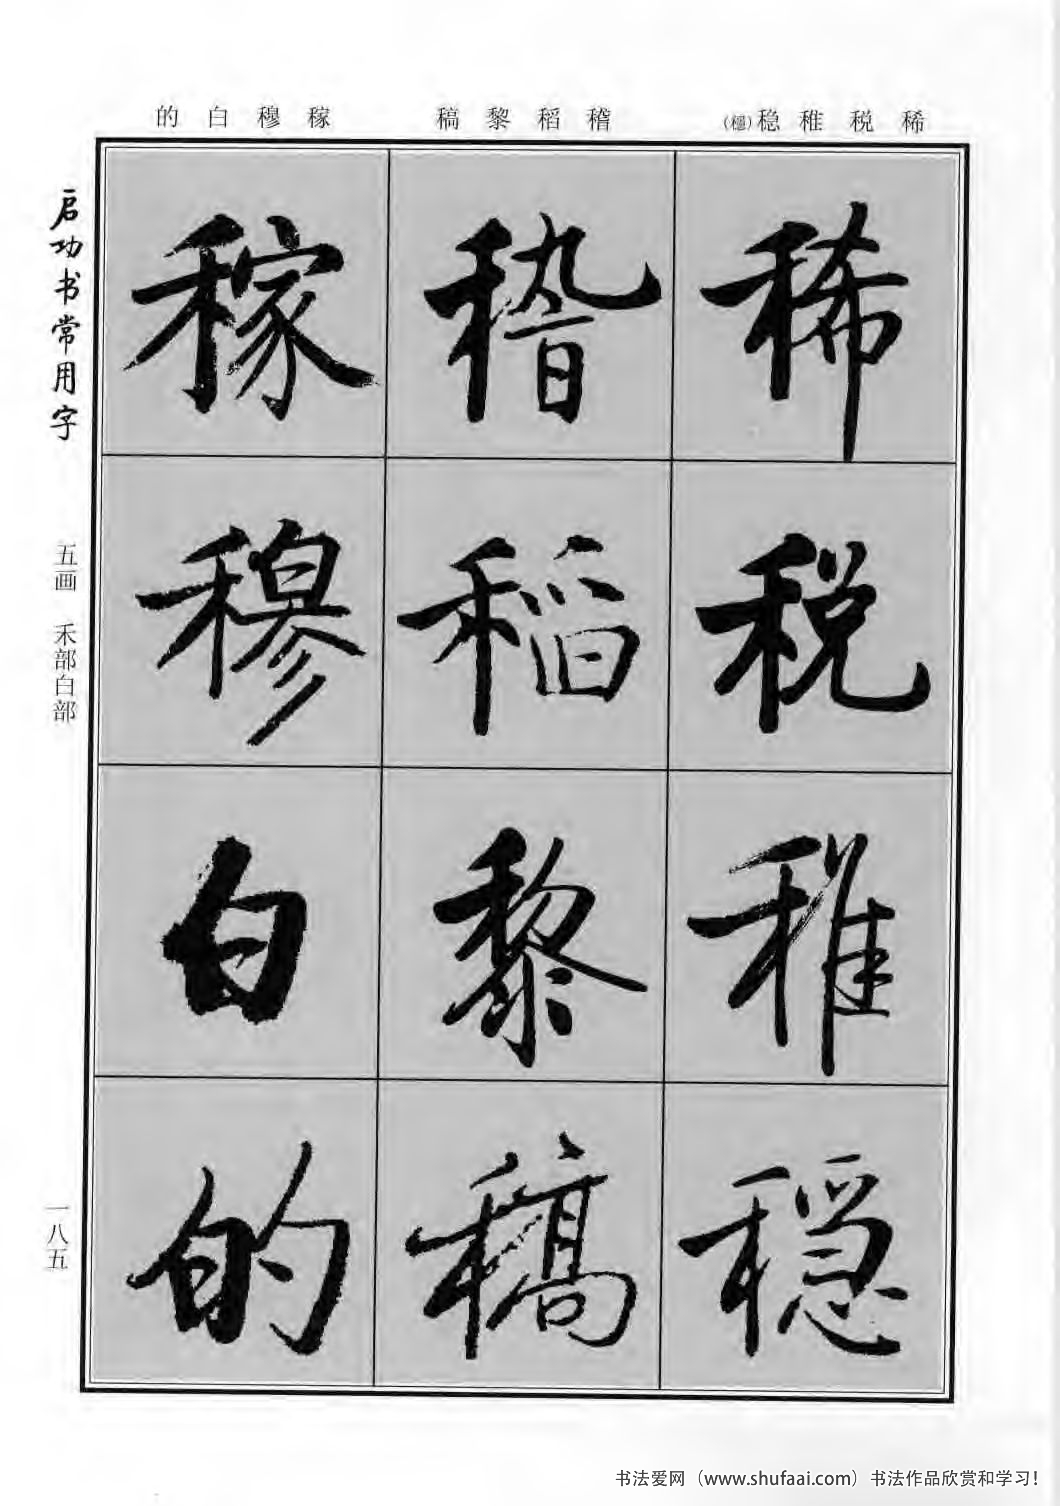 稀税稚稳(穩)
稽稻黎稿
稼穆白的
稀税稚穩
稽稻黎稿
稼穆白的
启功书常用字
五画 禾部白部
一八五
书法爱网（www.shufaai.com）书法作品欣赏和学习！